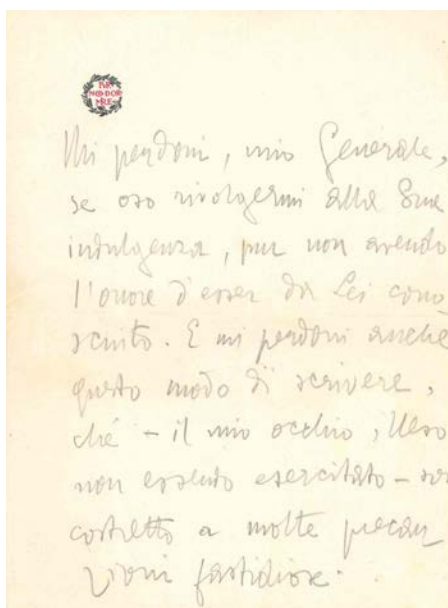 PER
NON DOR
MIRE
Mi perdoni, mio Generale,
se oso rivolgermi alla Sua
indulgenza, pur non avendo
l'onore d'esser da Lei cono-
sciuto. E mi perdoni anche
questo modo di scrivere,
ché – il mio occhio illeso
non essendo esercitato – son
costretto a molte precau
zioni fastidiose.